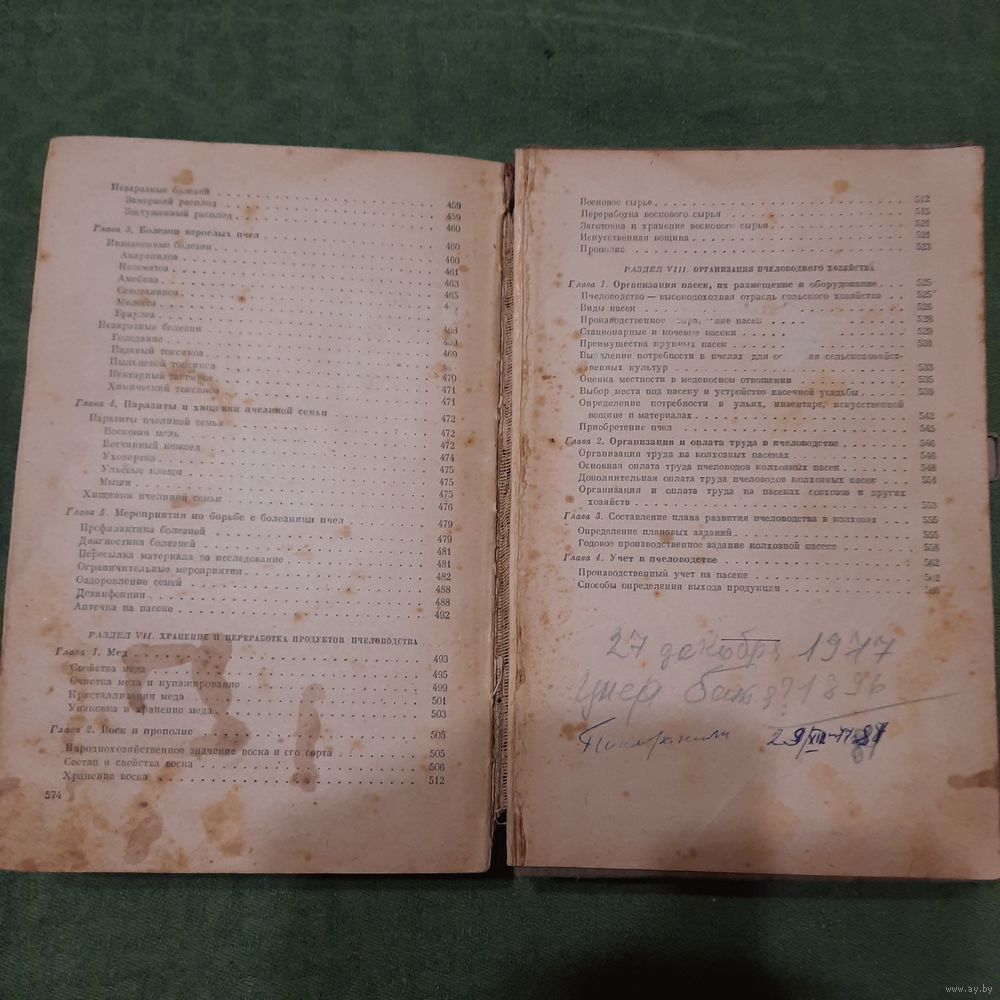 Незаразные болезни
Замерший расплод 459
Застуженный расплод 459
Глава 3. Болезни взрослых пчел 460
Инвазионные болезни 460
Акарапидоз 460
Нозематоз 461
Амебиаз 463
Сенотаиниоз 465
Мелеоз
Браулез
Незаразные болезни 468
Голодание
Падевый токсикоз 469
Пыльцевой токсикоз
Нектарный токсикоз 470
Химический токсикоз 471
Глава 4. Паразиты и хищники пчелиной семьи 471
Паразиты пчелиной семьи 472
Восковая моль 472
Ветчинный кожеед 472
Уховертка 474
Ульевые клещи 475
Мыши 475
Хищники пчелиной семьи 476
Глава 5. Мероприятия по борьбе с болезнями пчел 479
Профилактика болезней 479
Диагностика болезней 481
Пересылка материала на исследование 481
Ограничительные мероприятия 482
Оздоровление семей 488
Дезинфекция 488
Аптечка на пасеке 492
РАЗДЕЛ VII. ХРАНЕНИЕ И ПЕРЕРАБОТКА ПРОДУКТОВ ПЧЕЛОВОДСТВА
Глава 1. Мед 493
Свойства меда 495
Очистка меда и купажирование 499
Кристаллизация меда 501
Упаковка и хранение меда 503
Глава 2. Воск и прополис 505
Народнохозяйственное значение воска и его сорта 505
Состав и свойства воска 506
Хранение воска 512
574
Восковое сырье 512
Переработка воскового сырья 515
Заготовка и хранение воскового сырья 521
Искусственная вощина 521
Прополис 523
РАЗДЕЛ VIII. ОРГАНИЗАЦИЯ ПЧЕЛОВОДНОГО ХОЗЯЙСТВА
Глава 1. Организация пасек, их размещение и оборудование 525
Пчеловодство — высокодоходная отрасль сельского хозяйства 525
Виды пасек 526
Производственное пасек 528
Стационарные и кочевые пасеки 529
Преимущества крупных пасек 531
потребности в пчелах для сельскохозяйст-
венных культур 533
Оценка местности в медоносном отношении 535
Выбор места под пасеку и устройство пасечной усадьбы 539
Определение потребности в ульях, инвентаре, искусственной
вощине и материалах 542
Приобретение пчел 545
Глава 2. Организация и оплата труда в пчеловодстве 546
Организация труда на колхозных пасеках 546
Основная оплата труда пчеловодов колхозных пасек 548
Дополнительная оплата труда пчеловодов колхозных пасек 551
Организация и оплата труда на пасеках совхозов и других
хозяйств 553
Глава 3. Составление плана развития пчеловодства в колхозах 555
Определение плановых заданий 555
Годовое производственное задание колхозной пасеке 558
Глава 4. Учет в пчеловодстве 562
Производственный учет на пасеке 562
Способы определения выхода продукции
27 декабря 1977
умер 1896
Похоронили 29/XII-77
www.ay.by